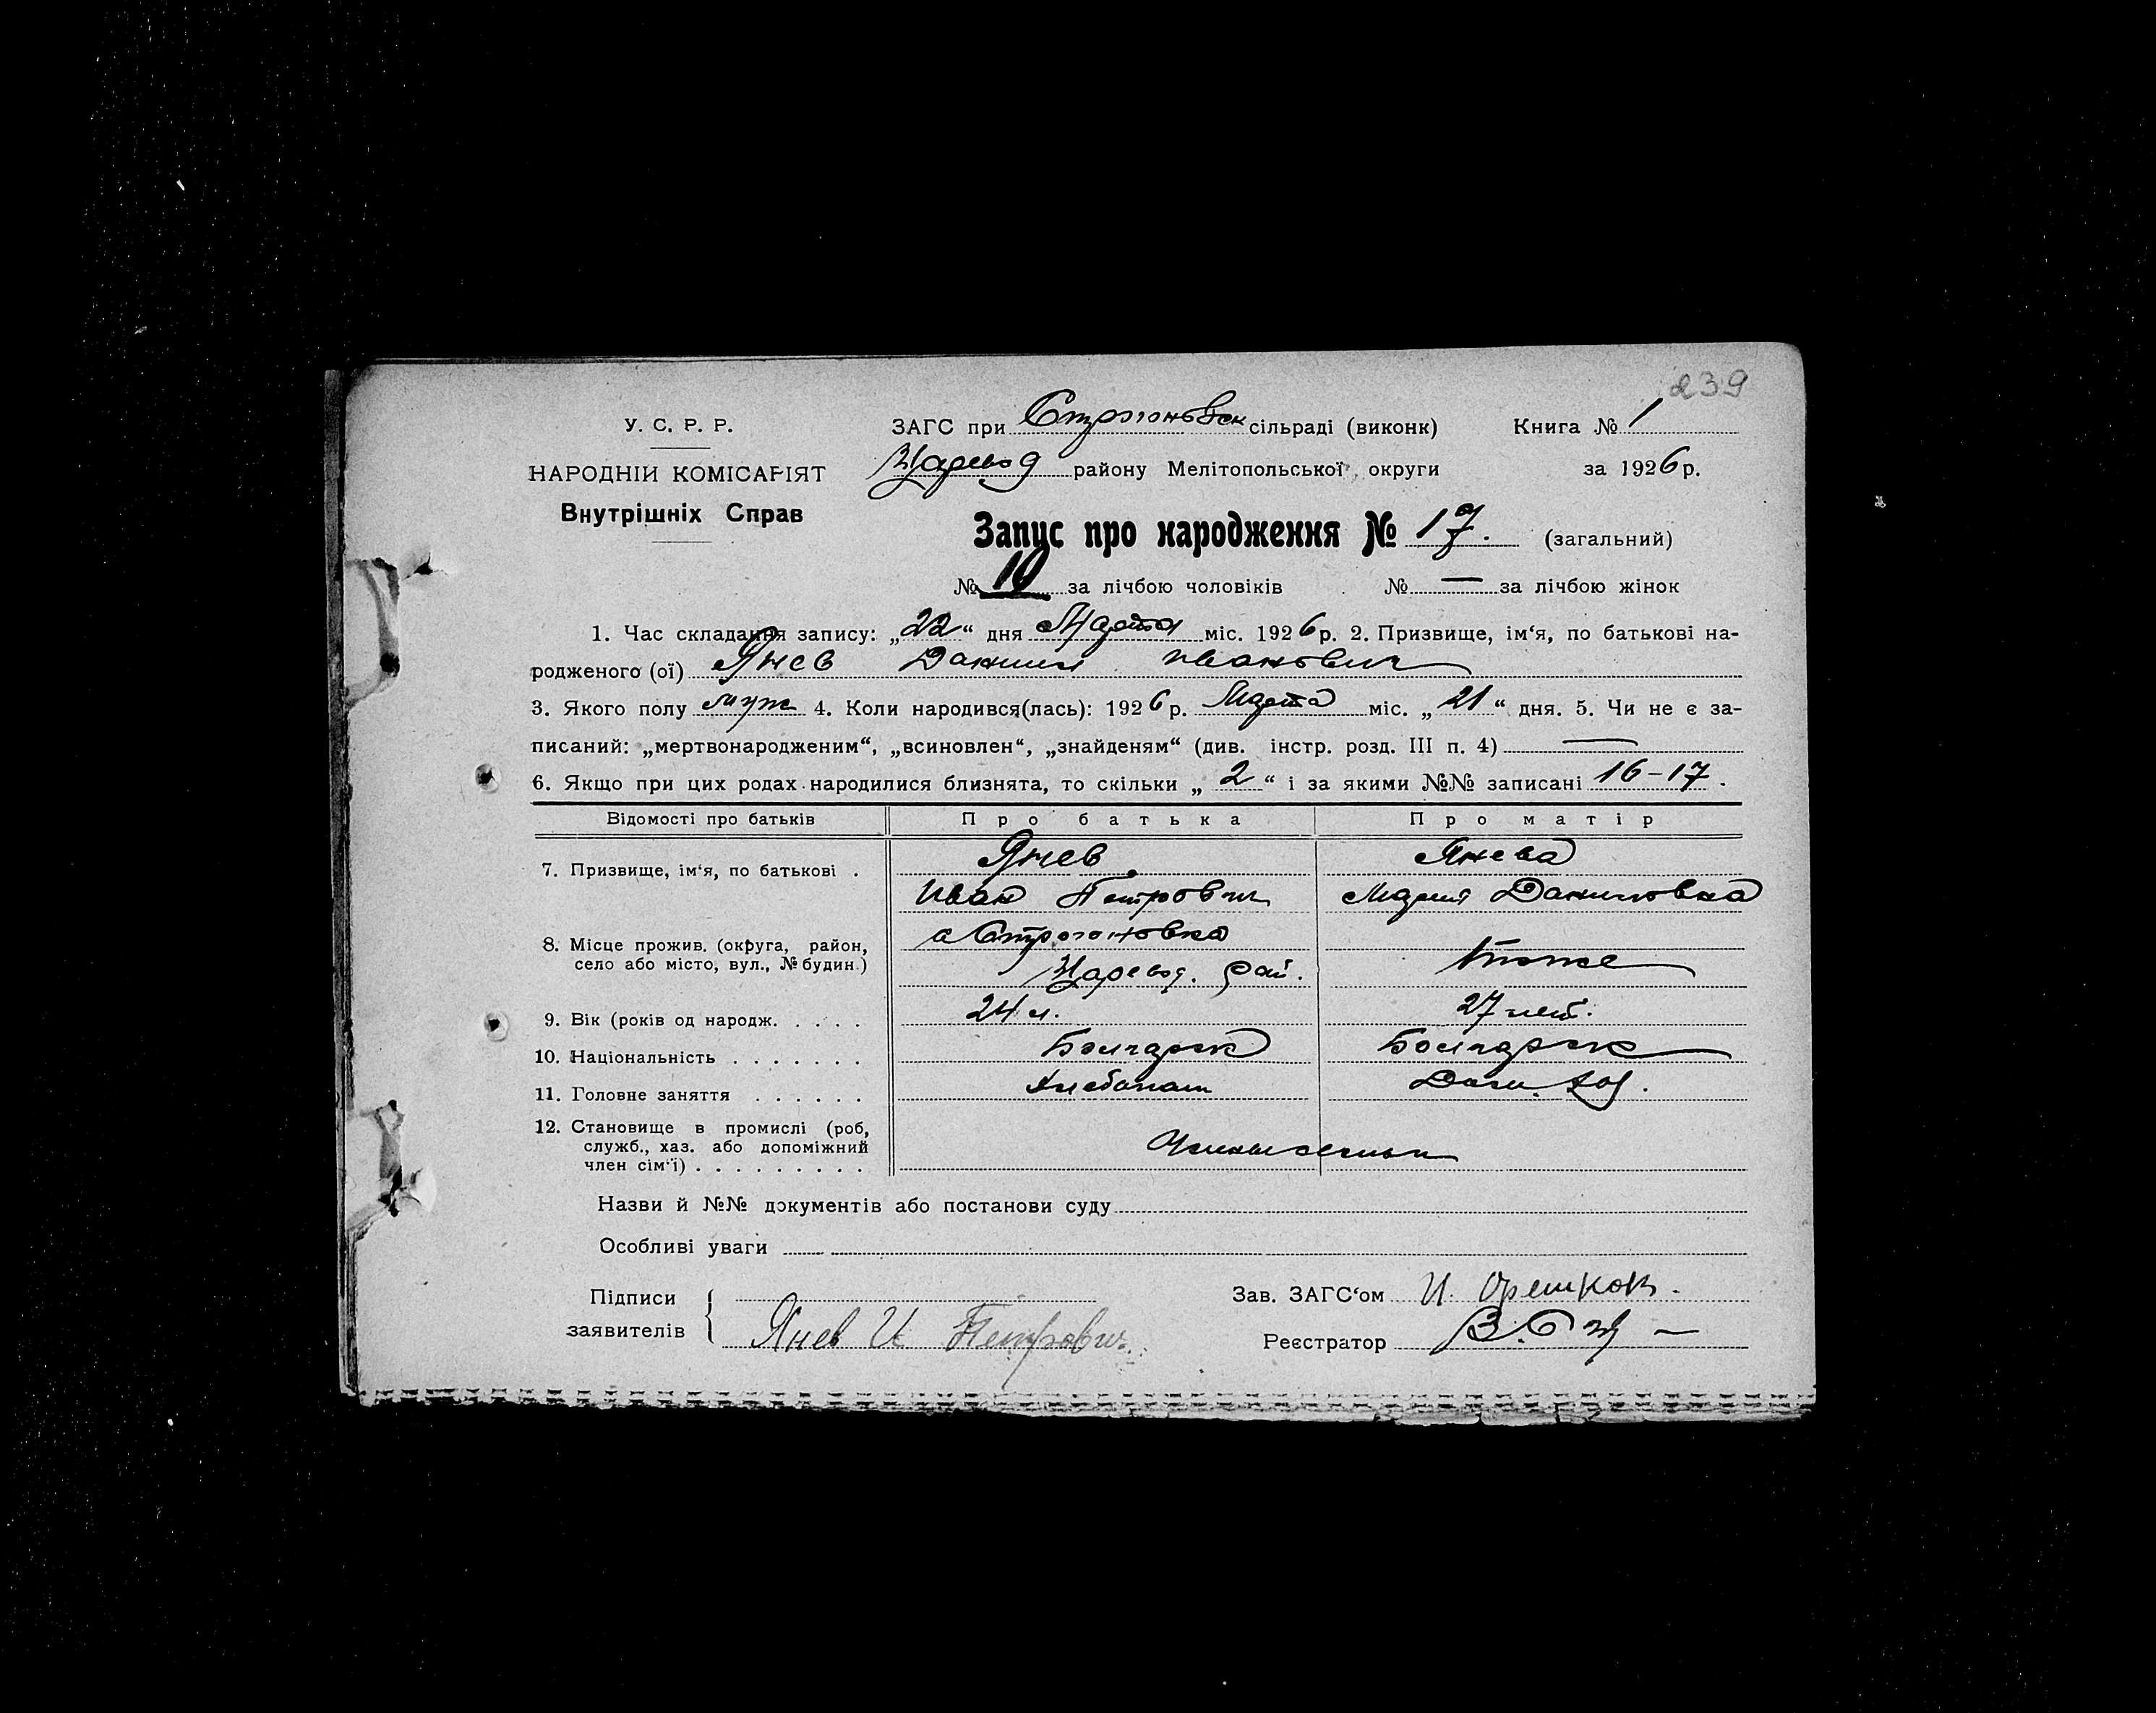 239
У. С. Р. Р.
ЗАГС при Строгоновск сільраді (виконк) Книга № 1
НАРОДНІЙ КОМІСАРІЯТ
Царевод району Мелітопольської округи за 1926 р.
Внутрішніх Справ
Запис про народження № 17. (загальний)
№ 10 за лічбою чоловіків № — за лічбою жінок
1. Час складання запису: „22“ дня Марта міс. 1926 р. 2. Призвище, ім‘я, по батькові на-
родженого (ої) Янев Даниил Иванович
3. Якого полу муж 4. Коли народився(лась): 1926 р. Марта міс. „21“ дня. 5. Чи не є за-
писаний: „мертвонародженим“, „всиновлен“, „знайденям“ (див. інстр. розд. III п. 4) —
6. Якщо при цих родах народилися близнята, то скільки „2“ і за якими №№ записані 16-17.
Відомості про батьків Про батька Про матір
7. Призвище, ім‘я, по батькові . Янев Янева
Иван Петрович Мария Даниловна
8. Місце прожив. (округа, район, село або місто, вул., № будин.) Строгоновка
Царевод. рай. тоже
9. Вік (років од народж. . . . . 24 л. 27 лет.
10. Національність . . . . . . . Болгарск Болгарск
11. Головне заняття . . . . . . Хлебопаш Дом. хоз.
12. Становище в промислі (роб,
служб., хаз. або допоміжний
член сім‘ї) . . . . . . . . .
Назви й №№ документів або постанови суду
Особливі уваги
Підписи заявителів Янев И Петрович.
Зав. ЗАГС‘ом И. Орешков.
Реєстратор